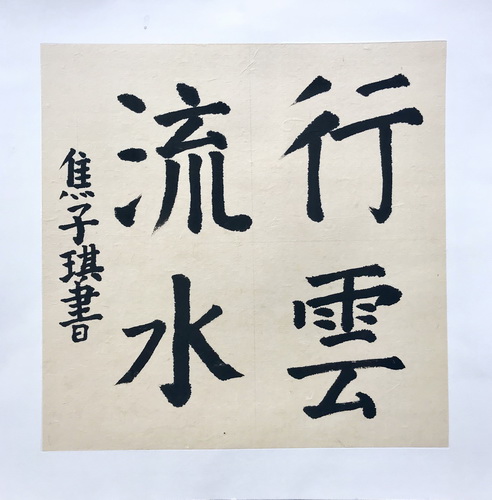 行雲
流水
焦子琪書